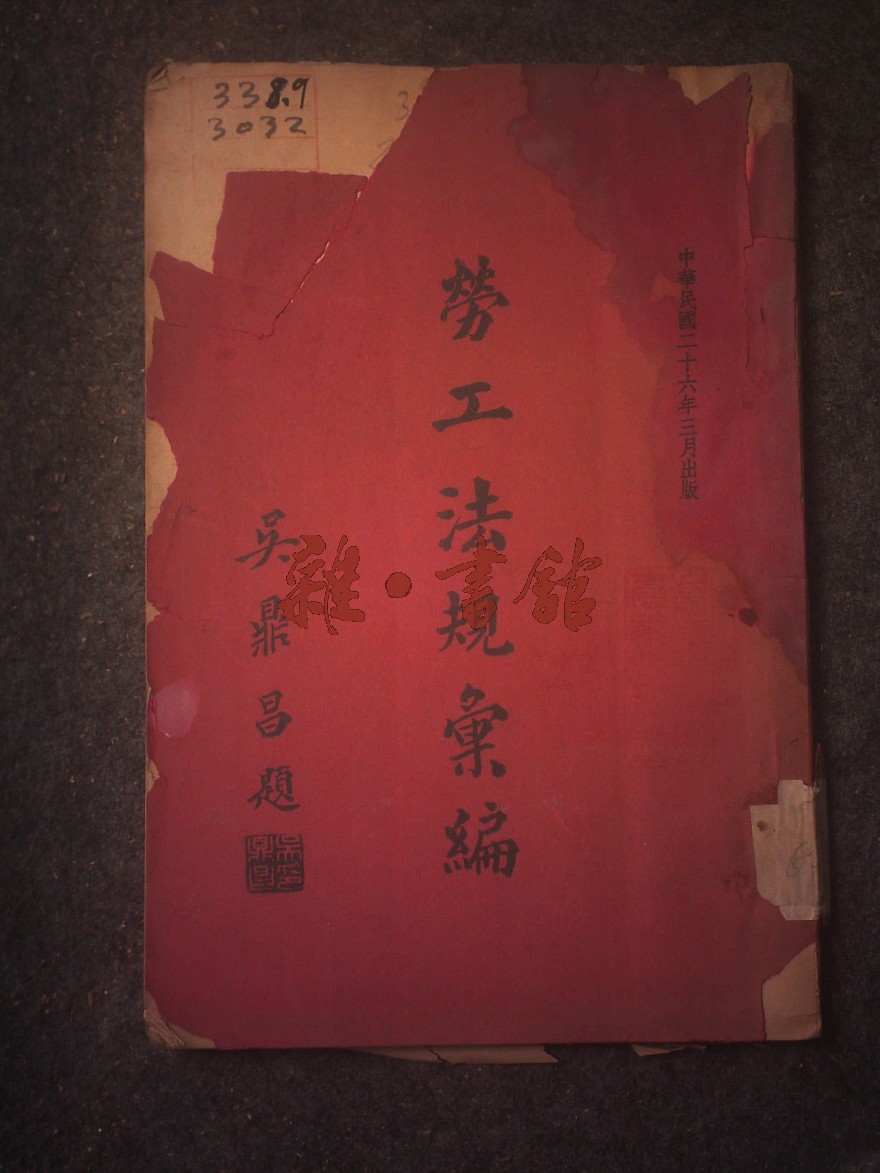 338.9
3032
中華民國二十六年三月出版
勞工法規彙編
吳鼎昌題
雜·書館